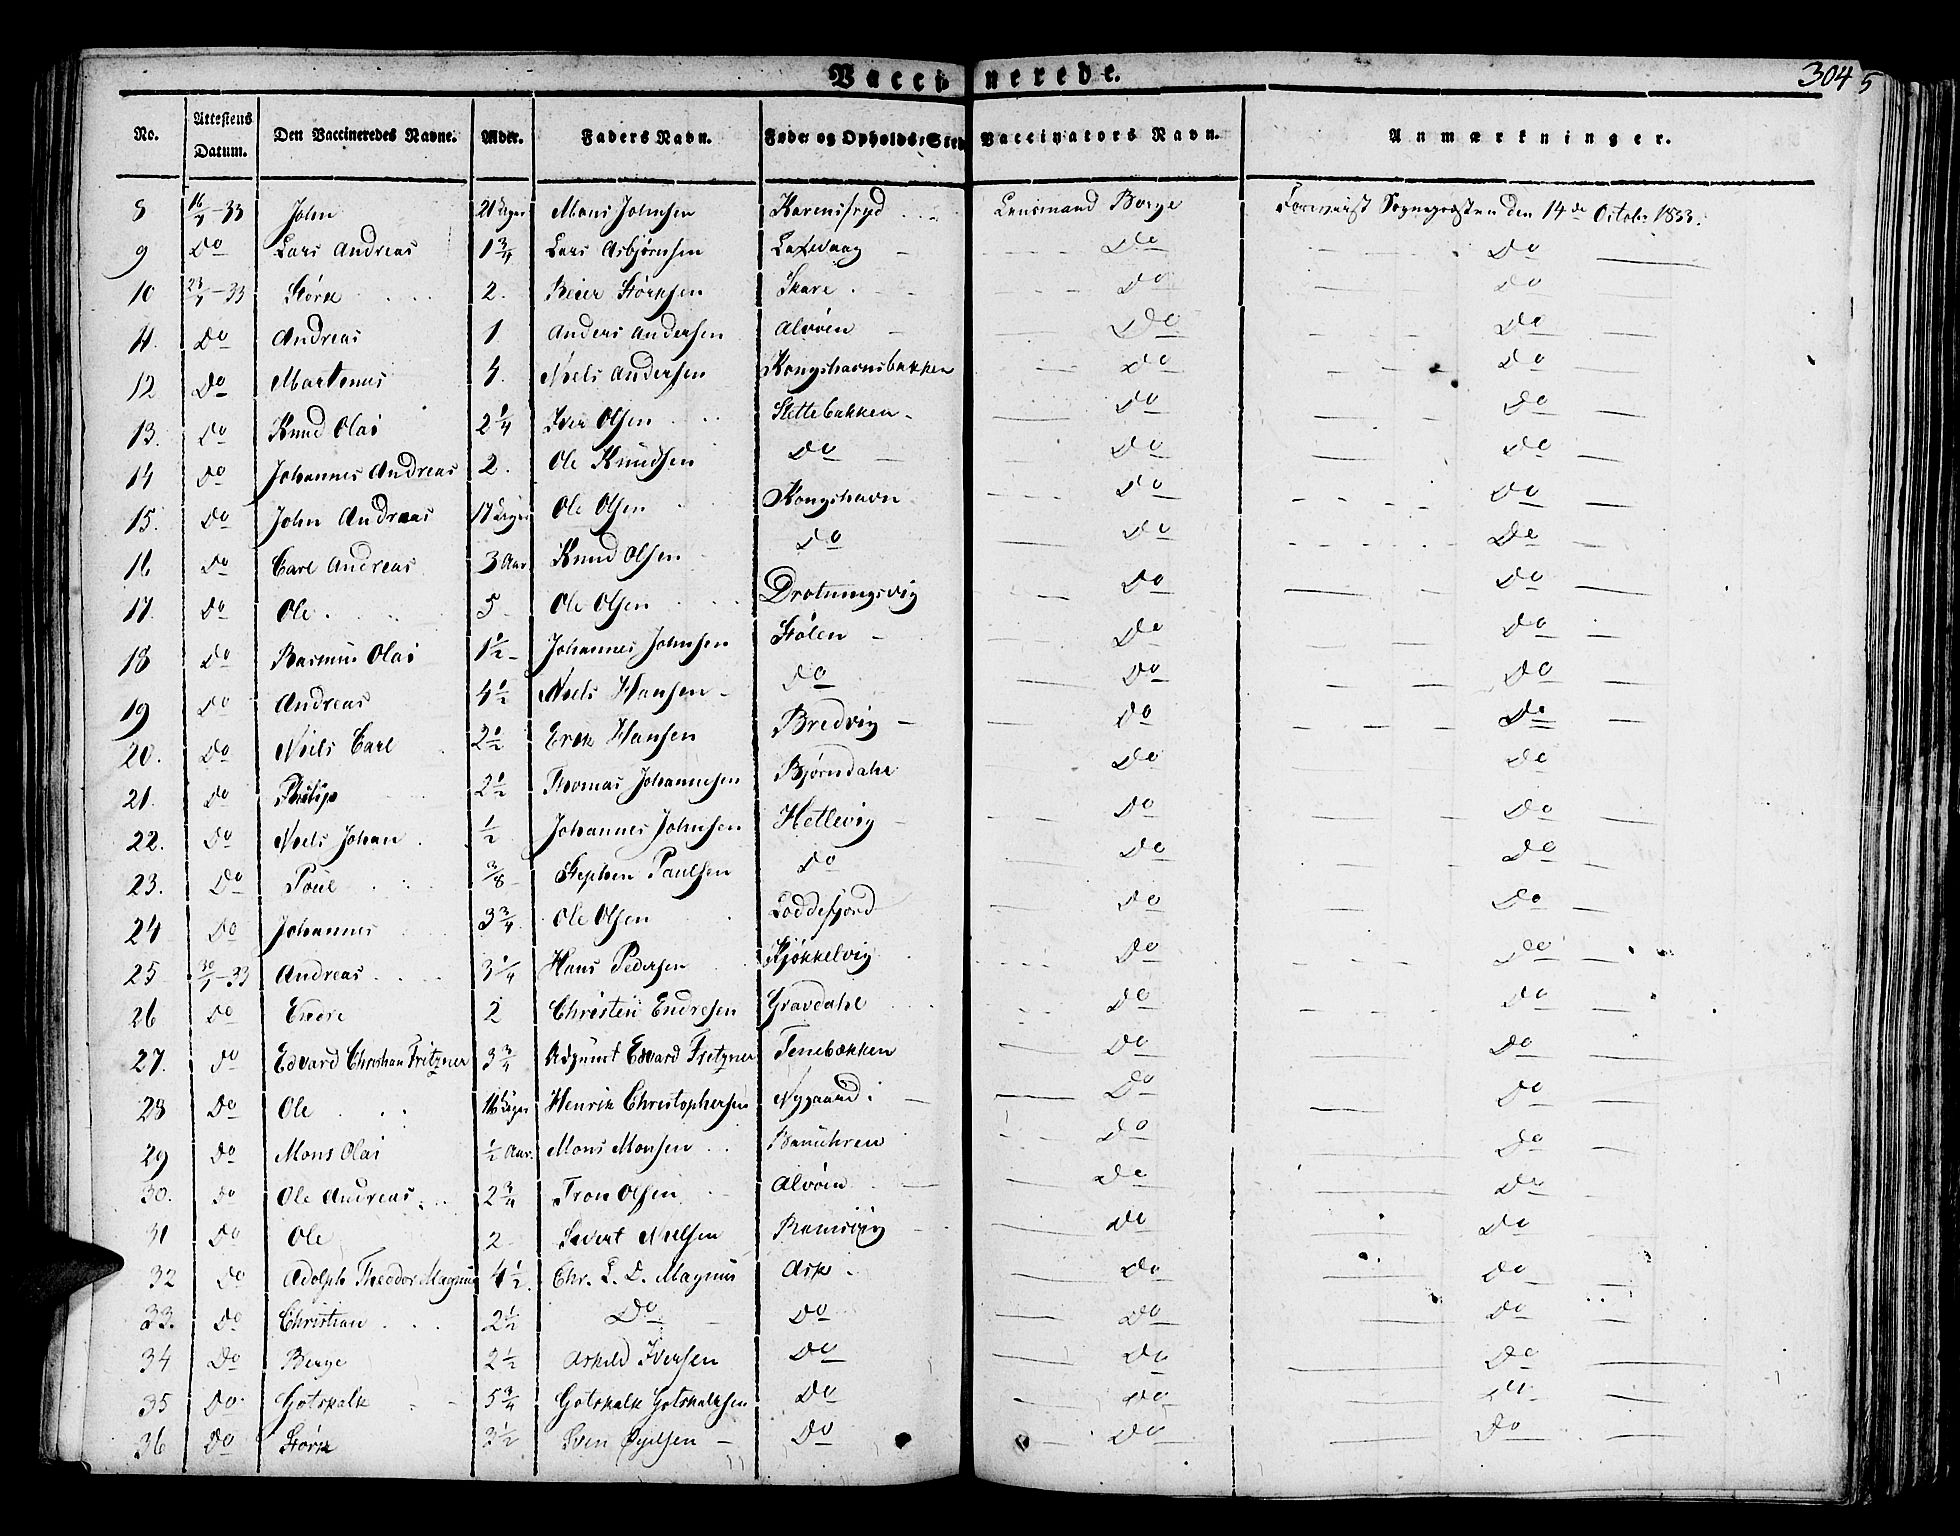 Vaccinerede.
304 5
No. Attestens Datum. Den Vaccineredes Navne. Alder. Faders Navn. Føde og Opholds-Sted Vaccinators Navn. Anmærkninger.
8 16/7-33 John 21 Uger Mons Johnsen Lensmand Borge Foreviist Sognepræsten den 14de Octobr 1833.
9 Do Lars Andreas 1 3/4 Lars Asbjørnsen Laxevaag Do Do
10 23/7-33 Størk 2. Beier Størksen Skare Do Do
11. Do Andreas 1 Anders Andersen Alvøen Do Do
12 Do Martenus 4. Niels Andersen Kongshavnsbakken Do Do
13. Do Knud Olai 2 1/4 Iver Olsen Slettebakken Do Do
14 Do Johannes Andreas 2. Ole Knudsen Do Do Do
15. Do John Andreas 17 Uger Ole Olsen Kongshavn Do Do
16 Do Carl Andreas 3 Aar. Knud Olsen Do Do Do
17. Do Ole 5 Ole Olsen Drotningsvig Do Do
18 Do Rasmus Olai 1 1/2 Johannes Johnsen Stølen Do Do
19 Do Andreas 4 1/2 Niels Hansen Do Do Do
20. Do Niels Carl 2 1/2 Erik Hansen Bredvig Do Do
21. Do Philip 2 1/2 Thomas Johannesen Bjørndahl Do Do
22. Do Niels Johan 1/2 Johannes Johnsen Hetlevig Do Do
23. Do Poul 3/8 Stephen Paulsen Do Do Do
24 Do Johannes 3 3/4 Ole Olsen Loddefjord Do Do
25 30/7-33 Andreas 3 1/4 Hans Pedersen Kjøkkelvig Do Do
26 Do Endre 2 Christen Endresen Gravdahl Do Do
27. Do Edvard Christian Fritzner 3 3/4 Adjunct Edvard Fritzner Tenebækken Do Do
28 Do Ole 16 Uger Henrik Christophersen Nygaard Do Do
29 Do Mons Olai 1/2 Aar. Mons Monsen Do Do
30. Do Ole Andreas 2 3/4 Tron Olsen Alvøen Do Do
31 Do Ole 2 Sivert Nielsen Ramsvig Do Do
32 Do Adolph Theodor Magnus 4 1/2 Chr. L. D. Magnus Ask Do Do
33. Do Christian 2 1/2 Do Do Do Do
34 Do Berge 2 1/2 Askild Iversen Do Do Do
35 Do Gotskalk 5 3/4 Gotskalk Gotskalksen Do Do Do
36 Do Størk 3 1/2 Sven Do Do Do